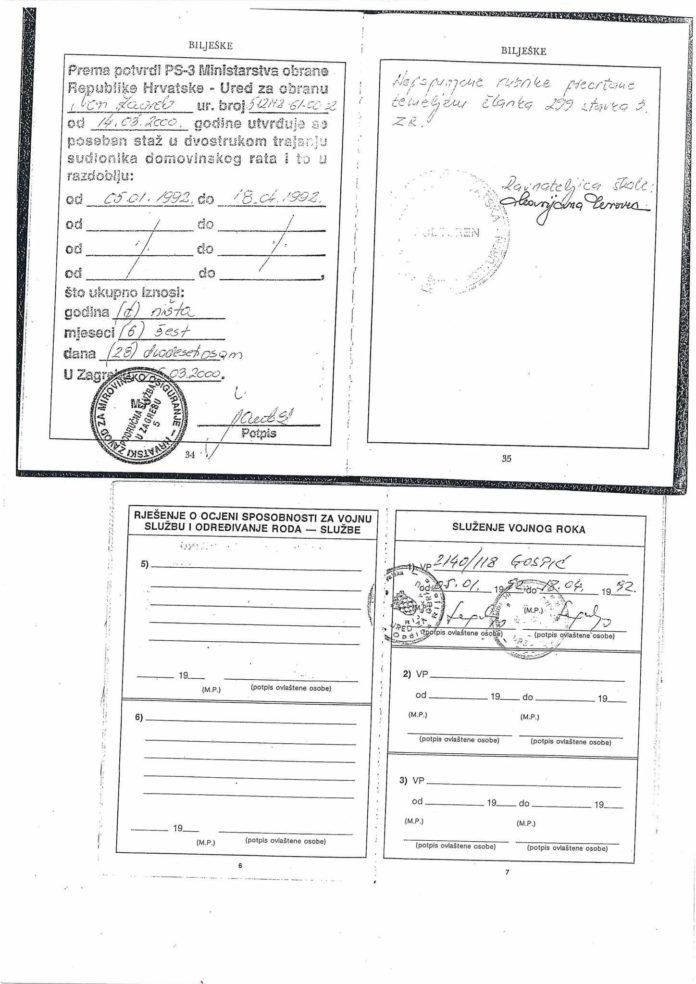 BILJEŠKE
Prema potvrdi PS-3 Ministarstva obrane
Republike Hrvatske - Ured za obranu
ur. broj
od 14.03.2000. godine utvrđuje se
poseban staž u dvostrukom trajanju
sudionika domovinskog rata i to u
razdoblju:
od 05.01.1992. do 18.04.1992.
od do
od do
od do ,
što ukupno iznosi:
godina ništa
mjeseci (6) šest
dana (28) dvadesetosam
U Zagrebu .03.2000.
HRVATSKI ZAVOD ZA MIROVINSKO OSIGURANJE
PODRUČNA SLUŽBA
U ZAGREBU
5
Potpis
34
BILJEŠKE
Neispunjene rubrike precrtane
temeljem članka 299 stavka 3.
ZR.
Ravnateljica škole:
35
RJEŠENJE O OCJENI SPOSOBNOSTI ZA VOJNU
SLUŽBU I ODREĐIVANJE RODA — SLUŽBE
5)
19
(M.P.) (potpis ovlaštene osobe)
6)
19
(M.P.) (potpis ovlaštene osobe)
6
SLUŽENJE VOJNOG ROKA
1) VP 2140/118 GOSPIĆ
od 05.01. 1992. do 18.04. 1992.
(M.P.)
(potpis ovlaštene osobe) (potpis ovlaštene osobe)
2) VP
od 19 do 19
(M.P.) (M.P.)
(potpis ovlaštene osobe) (potpis ovlaštene osobe)
3) VP
od 19 do 19
(M.P.) (M.P.)
(potpis ovlaštene osobe) (potpis ovlaštene osobe)
7